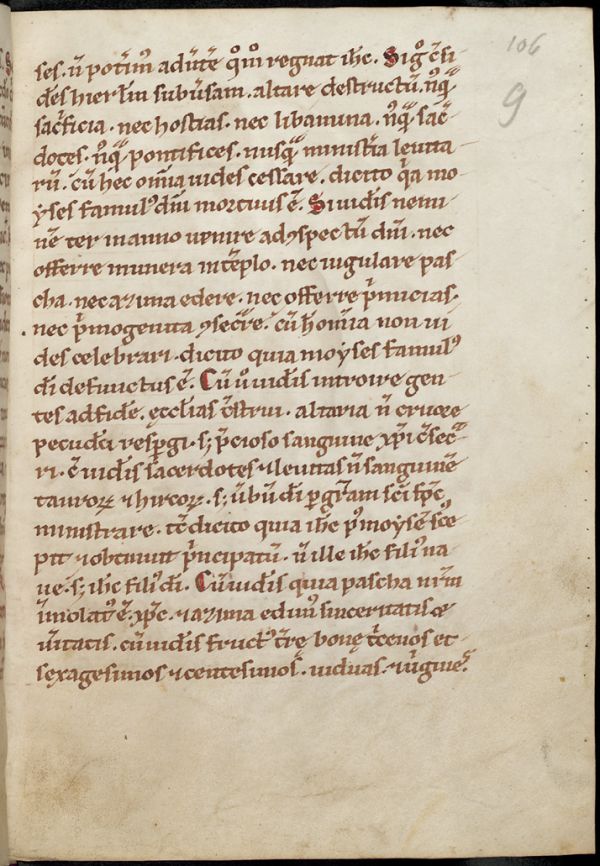 ses. ū potim᷒ aduētē qm̄ regnat ihc̄. Sigͦ c̄si
des hierl̄m subūsam. altare destructū. nq̄
sac̄ficia. nec hostias. nec libamina. nq̄ sac̄
dotes. nq̄ pontifices. nusq̄ minist̄ia leuita
rū. cū hec om̄ia uides cessare. dicito qa mo
yses famul᷒ dn̄i mortuus ē. Si uidis nemi
nē ter in anno uenire ad ꝯspectū dn̄i. nec
offerre munera in tēplo. nec iugulare pas
cha. nec azima edere. nec offerre p̄micias.
nec p̄mogenita ꝯsec̄re. cū h̄ om̄ia non ui
des celebrari. dicito quia moyses famul᷒
dī defunctus ē. Cū ū uidis introire gen
tes ad fidē. ęcclīas c̄strui. altaria n̄ cruore
pecudū resp̄gi. s; p̄cioso sanguine xp̄i c̄sec̄
ri. c̄ uidīs sacerdotes ⁊ leuitas n̄ sanguinē
tauroꝝ ⁊ hircoꝝ. s; ūbū dī p gr̄am sc̄i sp̄c
ministrare. tc̄ dicito quia ihc̄ p᷒ moysē sc̄e
pit ⁊ obtinuit p̄ncipatū. n̄ ille ihc̄ fili᷒ na
ue. s; ihc̄ fili᷒ dī. Cū uidis quia pascha nr̄m
īmolat᷒ ē xp̄c. ⁊ azima edim᷒ sinceritatis ⁊
ūitatis. cū uidis fruct᷒ t̄rę bonę t̄cenos et
sexagesimos ⁊ centesimos. uiduas. ⁊ ūgine᷒.
106
9